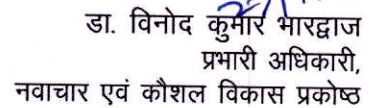 डा. विनोद कुमार भारद्वाज
प्रभारी अधिकारी,
नवाचार एवं कौशल विकास प्रकोष्ठ